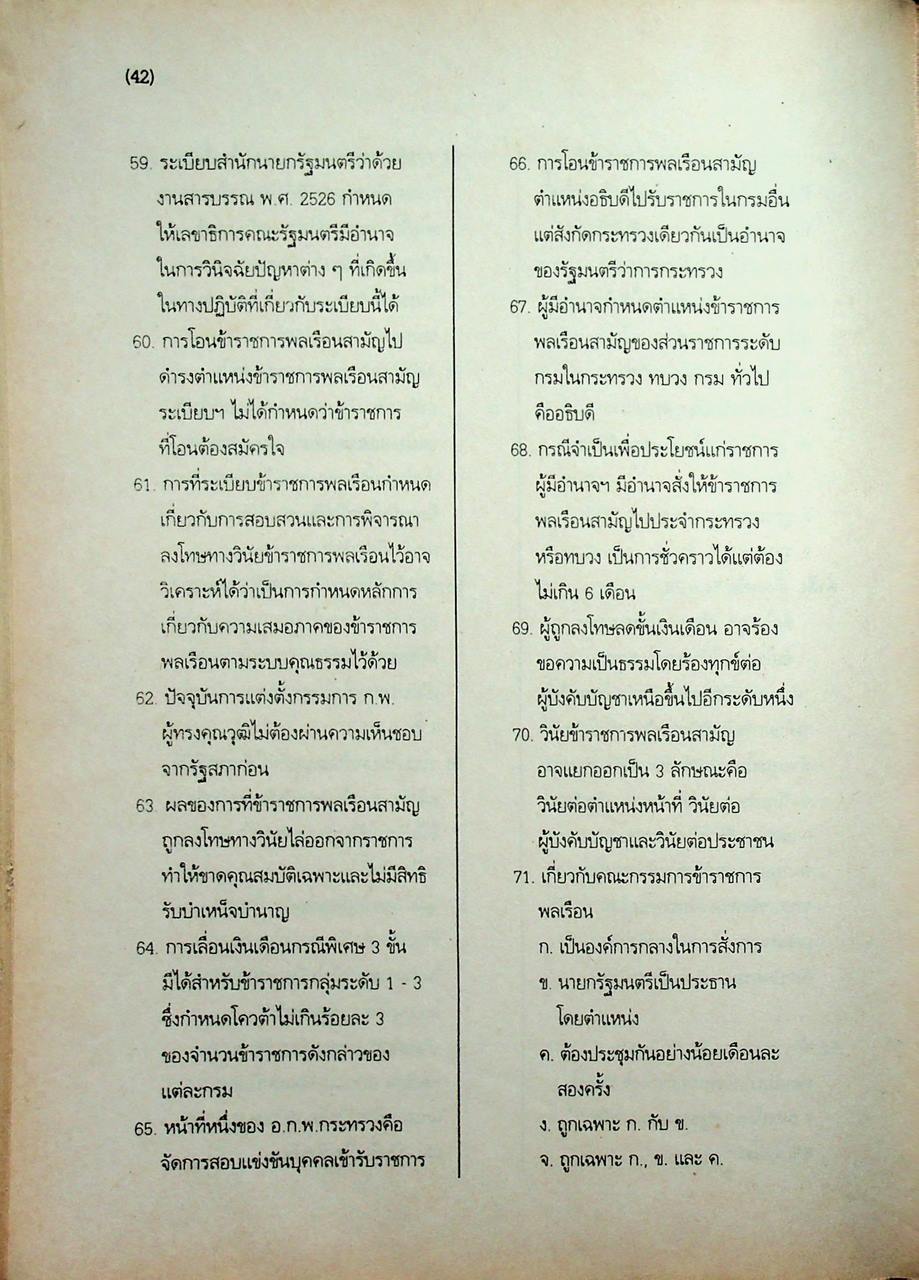 (42)
59. ระเบียบสำนักนายกรัฐมนตรีว่าด้วย
งานสารบรรณ พ.ศ. 2526 กำหนด
ให้เลขาธิการคณะรัฐมนตรีมีอำนาจ
ในการวินิจฉัยปัญหาต่าง ๆ ที่เกิดขึ้น
ในทางปฏิบัติที่เกี่ยวกับระเบียบนี้ได้
60. การโอนข้าราชการพลเรือนสามัญไป
ดำรงตำแหน่งข้าราชการพลเรือนสามัญ
ระเบียบฯ ไม่ได้กำหนดว่าข้าราชการ
ที่โอนต้องสมัครใจ
61. การที่ระเบียบข้าราชการพลเรือนกำหนด
เกี่ยวกับการสอบสวนและการพิจารณา
ลงโทษทางวินัยข้าราชการพลเรือนไว้อาจ
วิเคราะห์ได้ว่าเป็นการกำหนดหลักการ
เกี่ยวกับความเสมอภาคของข้าราชการ
พลเรือนตามระบบคุณธรรมไว้ด้วย
62. ปัจจุบันการแต่งตั้งกรรมการ ก.พ.
ผู้ทรงคุณวุฒิไม่ต้องผ่านความเห็นชอบ
จากรัฐสภาก่อน
63. ผลของการที่ข้าราชการพลเรือนสามัญ
ถูกลงโทษทางวินัยไล่ออกจากราชการ
ทำให้ขาดคุณสมบัติเฉพาะและไม่มีสิทธิ
รับบำเหน็จบำนาญ
64. การเลื่อนเงินเดือนกรณีพิเศษ 3 ขั้น
มีได้สำหรับข้าราชการกลุ่มระดับ 1 - 3
ซึ่งกำหนดโควต้าไม่เกินร้อยละ 3
ของจำนวนข้าราชการดังกล่าวของ
แต่ละกรม
65. หน้าที่หนึ่งของ อ.ก.พ.กระทรวงคือ
จัดการสอบแข่งขันบุคคลเข้ารับราชการ
66. การโอนข้าราชการพลเรือนสามัญ
ตำแหน่งอธิบดีไปรับราชการในกรมอื่น
แต่สังกัดกระทรวงเดียวกันเป็นอำนาจ
ของรัฐมนตรีว่าการกระทรวง
67. ผู้มีอำนาจกำหนดตำแหน่งข้าราชการ
พลเรือนสามัญของส่วนราชการระดับ
กรมในกระทรวง ทบวง กรม ทั่วไป
คืออธิบดี
68. กรณีจำเป็นเพื่อประโยชน์แก่ราชการ
ผู้มีอำนาจฯ มีอำนาจสั่งให้ข้าราชการ
พลเรือนสามัญไปประจำกระทรวง
หรือทบวง เป็นการชั่วคราวได้แต่ต้อง
ไม่เกิน 6 เดือน
69. ผู้ถูกลงโทษลดขั้นเงินเดือน อาจร้อง
ขอความเป็นธรรมโดยร้องทุกข์ต่อ
ผู้บังคับบัญชาเหนือขึ้นไปอีกระดับหนึ่ง
70. วินัยข้าราชการพลเรือนสามัญ
อาจแยกออกเป็น 3 ลักษณะคือ
วินัยต่อตำแหน่งหน้าที่ วินัยต่อ
ผู้บังคับบัญชาและวินัยต่อประชาชน
71. เกี่ยวกับคณะกรรมการข้าราชการ
พลเรือน
ก. เป็นองค์การกลางในการสั่งการ
ข. นายกรัฐมนตรีเป็นประธาน
โดยตำแหน่ง
ค. ต้องประชุมกันอย่างน้อยเดือนละ
สองครั้ง
ง. ถูกเฉพาะ ก. กับ ข.
จ. ถูกเฉพาะ ก., ข. และ ค.